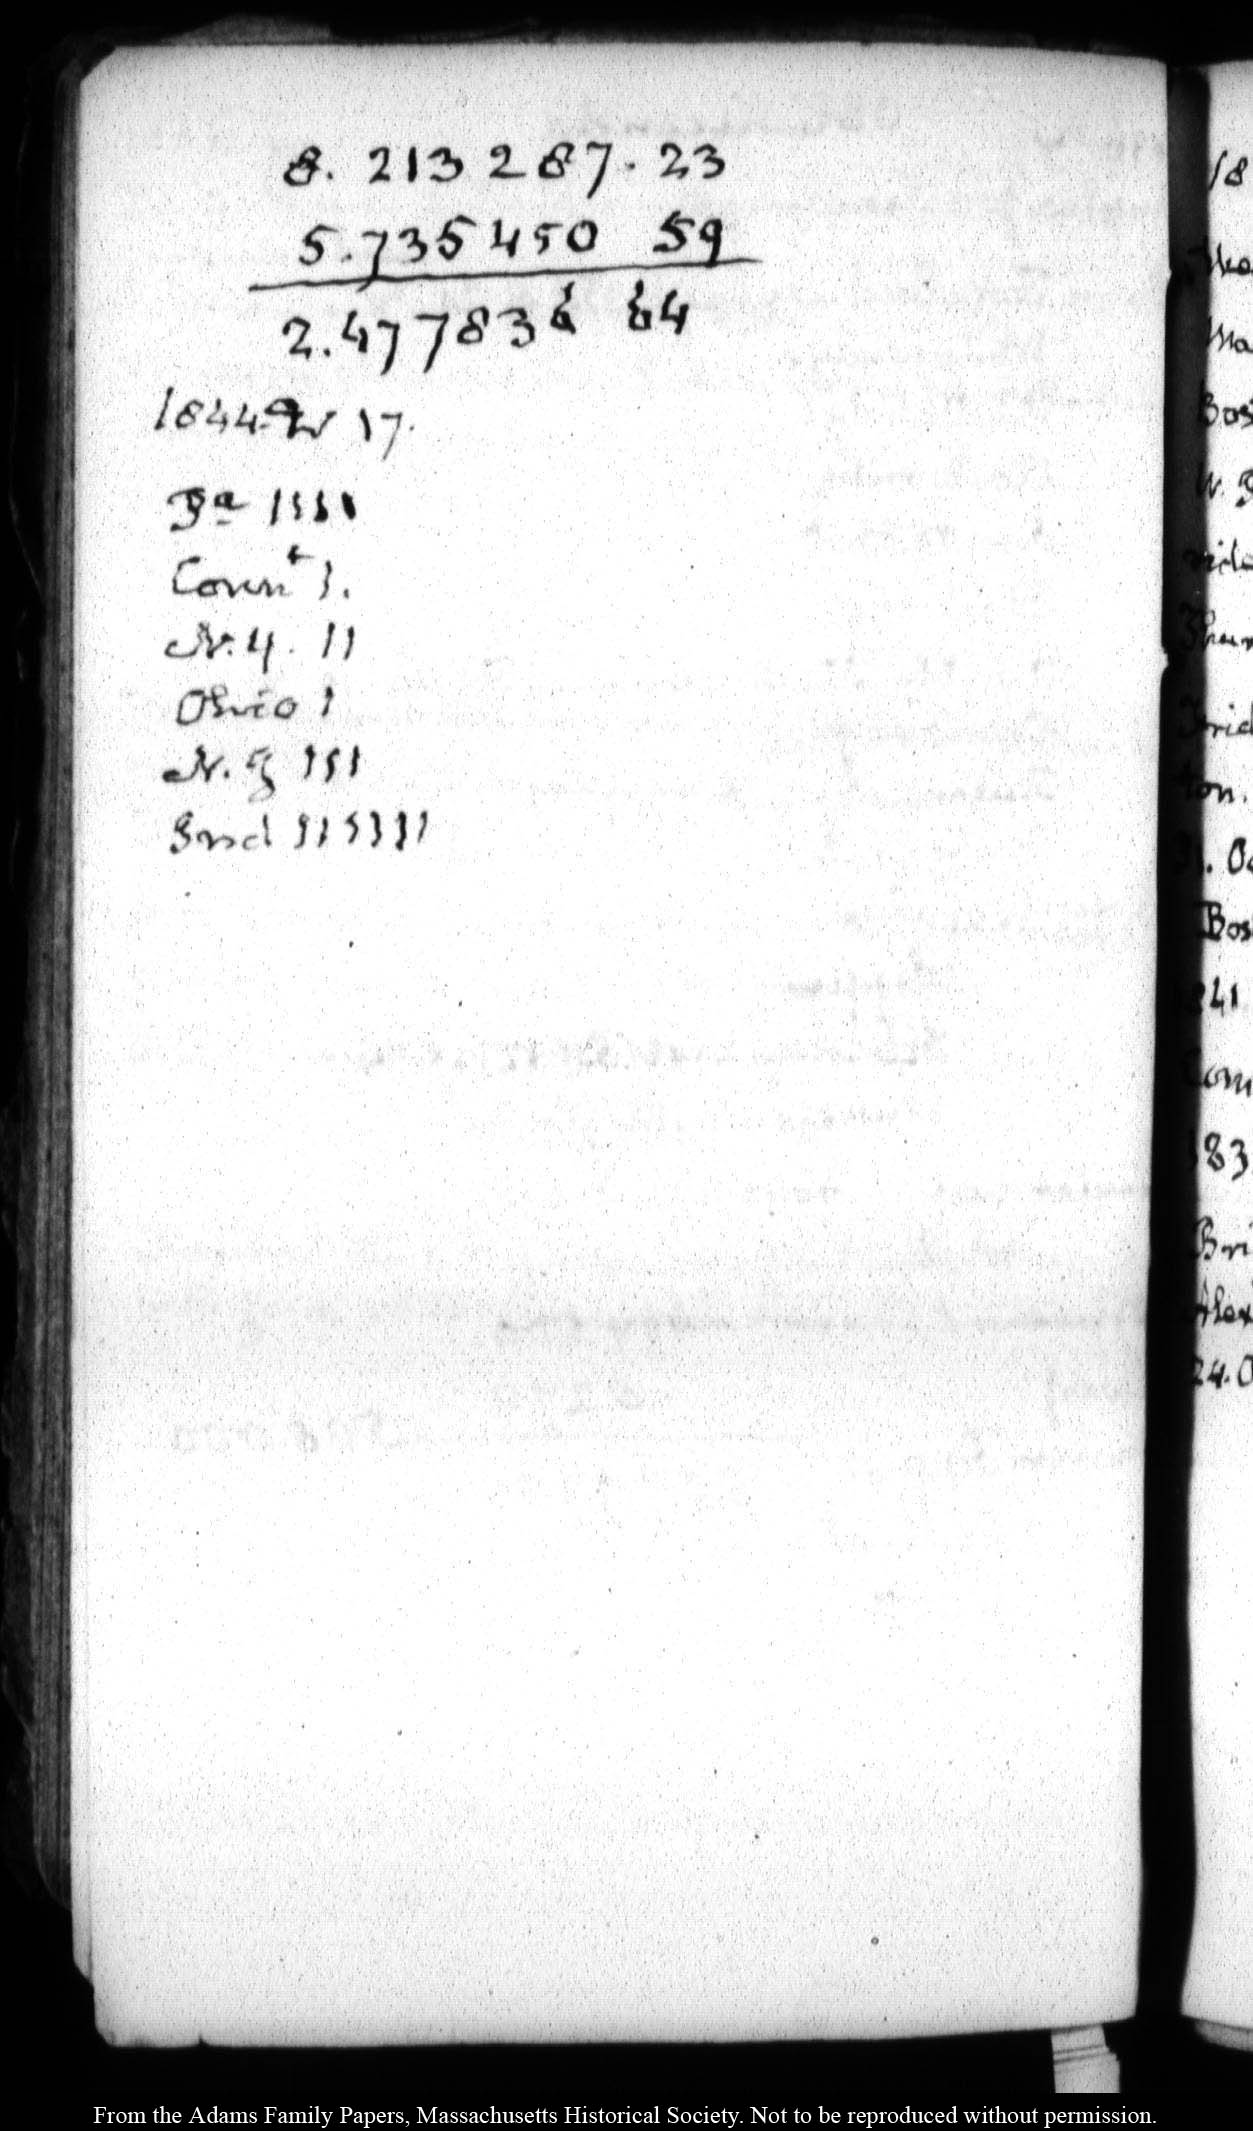 8. 213 287. 23
5.735 450 59
2.477836 64
1844. 17.
Pa 1111
Connt 1.
N. Y. 11
Ohio 1
N. J 111
Ind 111111
18
Ma
Bos
W. B
vide
Thur
Frid
ton.
31. Oc
Bos
1841
Com
183
Bri
Alex
24. O
From the Adams Family Papers, Massachusetts Historical Society. Not to be reproduced without permission.